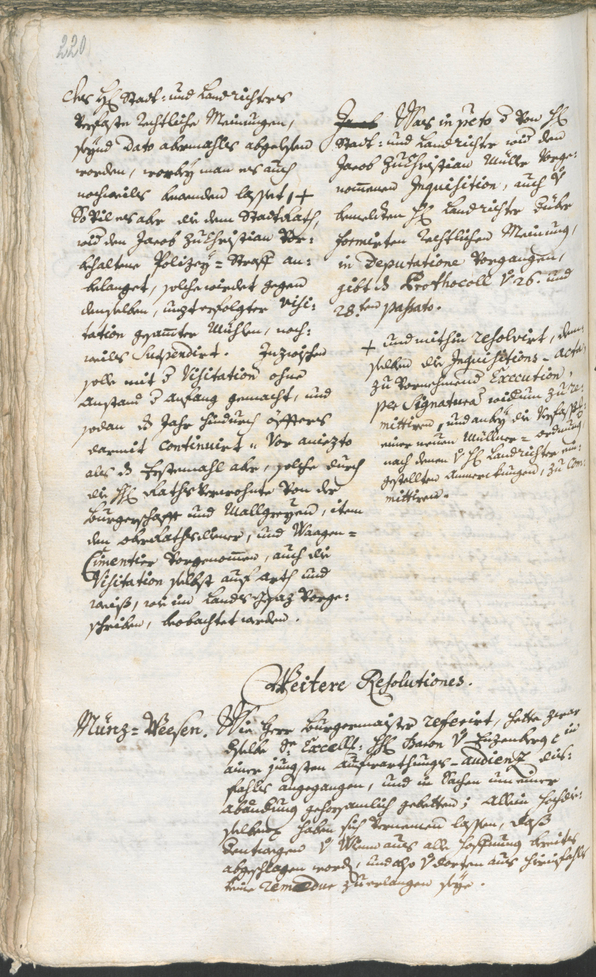 220
des H: Stadt- und Landrichters
verfaste rechtliche Mainungen,
seynd dato abermahls abgelesen
worden, worbey man es auch
nochmals bewenden lasset, +
So vil es aber die dem Stadt Rath,
wid den Jacob Zuchristian vor-
behaltene Polizey-Straff an-
belanget, solche würdet gegen
denselben, unzt erfolgter Visi-
tation gesamter Mühlen, noch-
mals suspendirt. Inzwischen
solle mit der Visitation ohne
Anstand der anfang gemacht, und
sodan das Jahr hindurch öffters
darmit continuirt. Vor aniezto
als das Erstemahl aber, solche durch
die H: Rathsverwohnte von der
Bürgerschafft und Mallgreyen, item
den ober Rathsdiener, und Waagen-
Cimentier vorgenommen, auch die
Visitation selbst auf arth und
weiss, wie im Lands vorge-
schriben, beobachtet werden.
Was in pcto der von H:
Stadt- und Landrichter wid den
Jacob Zuchristian Müller vorge-
nommenen Inquisition, auch
bemelten H: Landrichter
formirten rechtlichen Mainung,
in Deputatione vorgangen,
gibt das Prothocoll v. 26. und
28.ten passato.
+ und mithin resolvirt, dem-
selben die Inquisitions-acta
zu vornehmend Execution,
per Signatura widerum zu re-
mittiren, und anbey die verfass
einer neuen Müllner-ordnung
nach denen v H: Landrichter ein-
gestellten Anmerckungen, zu com-
mittiren.
Weitere Resolutiones.
Münz-Weesen. Wie Herr Bürgermaister referirt, hette zwar
Selbe Sr: Excell: H: Baron v Enzenberg in
ainer jüngsten Aufwarthungs-audienz dis-
fahls angegangen, und in Sachen um einer
abänderung gehorsamlich gebetten; Allein hochdie-
selben haben sich vernemen lassen, dass
v Wienn aus alle Hoffnung bereits
abgeschlagen word, und also v dorten aus hierinfahls
keine remedur zu erlangen seye.